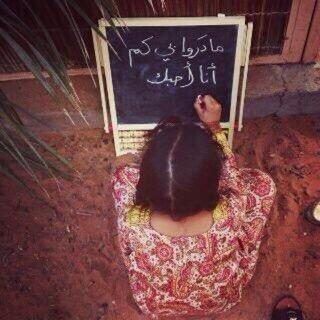 ما دروا بي كم
أنا أحبك